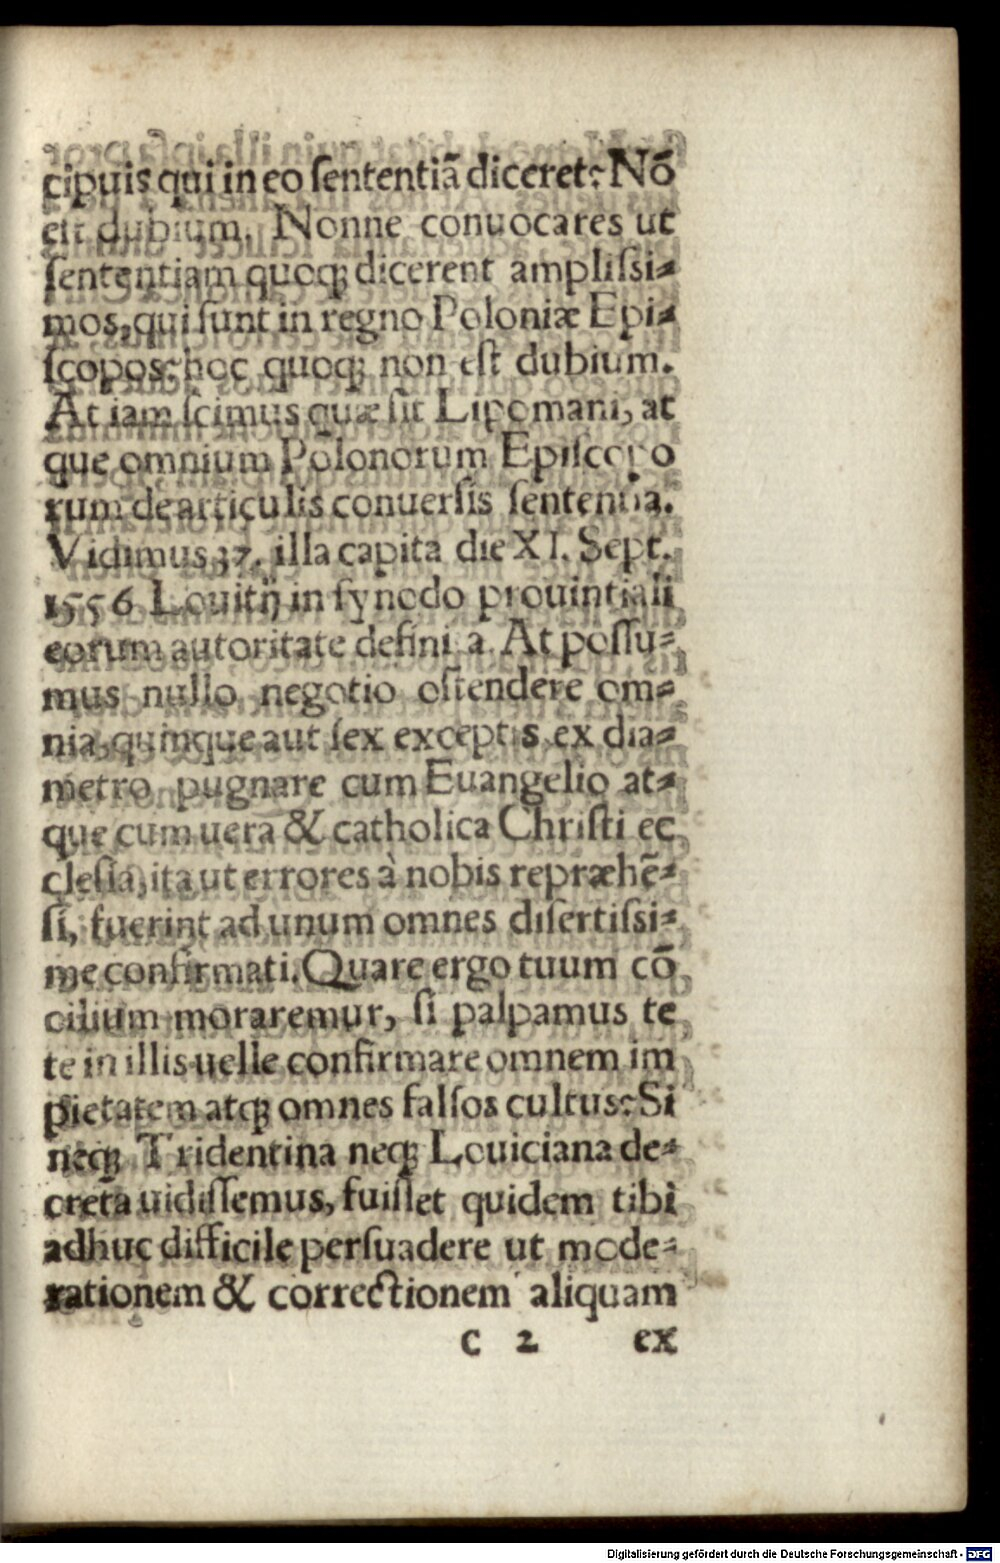 cipuis qui in eo ſententiã diceret: Nõ
eſt dubium. Nonne conuocares ut
ſententiam quoq; dicerent ampliſsi-
mos, qui ſunt in regno Poloniæ Epi-
ſcopos: hoc quoq; non eſt dubium.
At iam ſcimus quæ ſit Lipomani, at
que omnium Polonorum Epiſcopo
rum de articulis conuerſis ſententia.
Vidimus 37. illa capita die XI. Sept.
1556 Louitij in ſynodo prouintiali
eorum autoritate definita. At poſſu-
mus nullo negotio oſtendere om-
nia, quinque aut ſex exceptis ex dia-
metro pugnare cum Euangelio at-
que cum uera & catholica Chriſti ec
cleſia, ita ut errores à nobis repræhẽ-
ſi, fuerint ad unum omnes diſertiſsi-
me confirmati. Quare ergo tuum cõ
cilium moraremur, ſi palpamus te
te in illis uelle confirmare omnem im
pietatem atq; omnes falſos cultus: Si
neq; Tridentina neq; Louiciana de-
creta uidiſſemus, fuiſſet quidem tibi
adhuc difficile perſuadere ut mode-
rationem & correctionem aliquam
c 2 ex
Digitalisierung gefördert durch die Deutsche Forschungsgemeinschaft - DFG